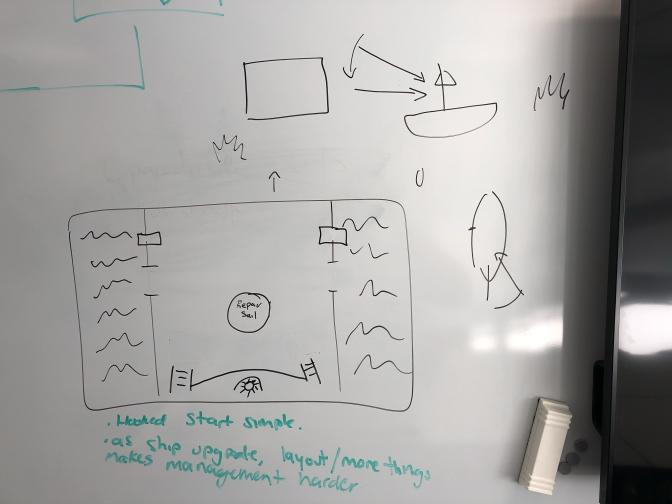 Repair
Sail
. Hooked Start simple.
. as ship upgrade, layout/more things
makes management harder